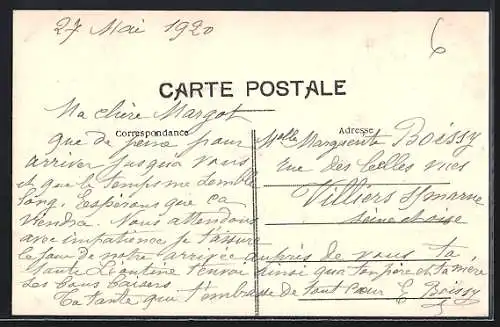 27 Mai 1920
6
CARTE POSTALE
Correspondance
Adresse
Ma chère Margot
que de peine pour
arriver jusqua vous
et que le temps me semble
long. Espérons que ça
viendra. Nous attendons
avec impatience je t'assure
le jour de notre arrivée auprès de vous ta
Léontine t'envoi ainsi qua ton père et ta mère
Les bons baisers
Ta tante qui t'embrasse de tout cœur E Boissy
Melle Marguerite Boissy
rue des belles vues
Villiers s/ marne
Seine et oise